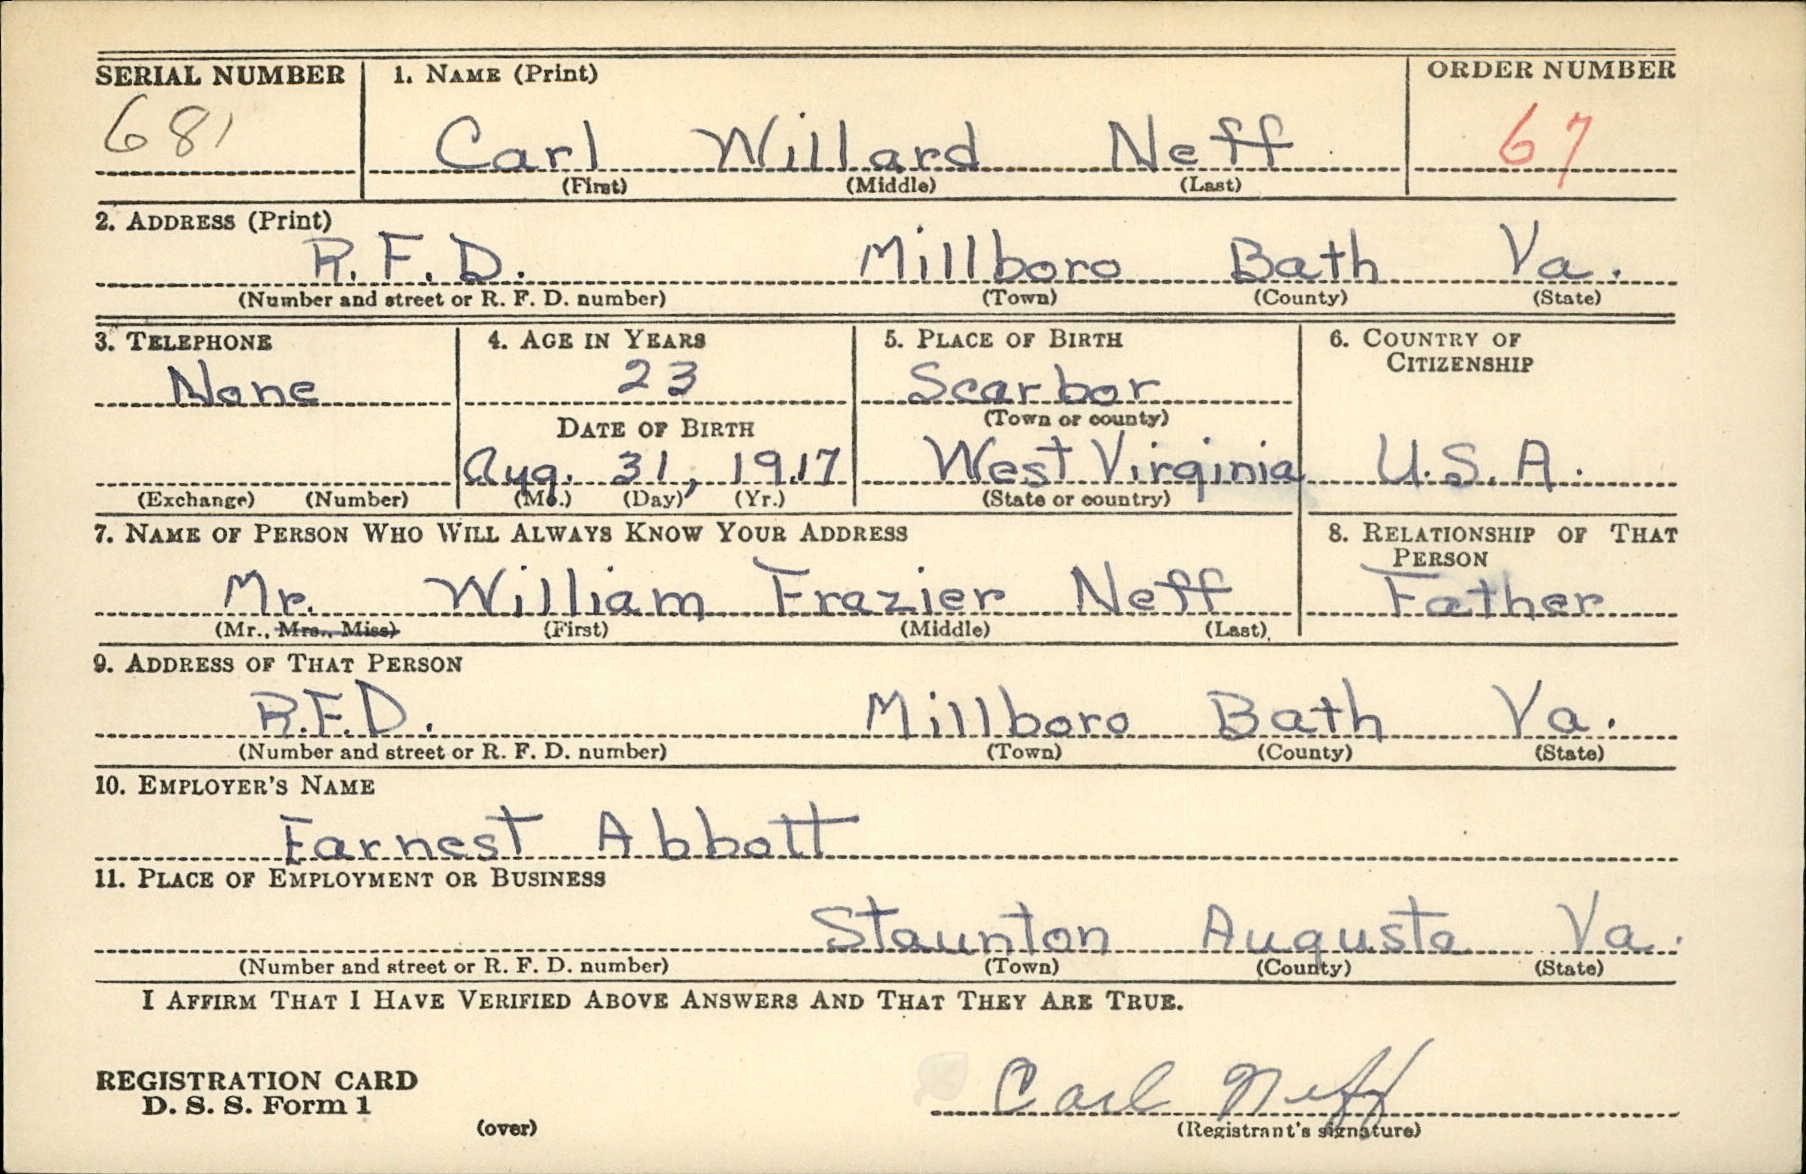 SERIAL NUMBER 1. NAME (Print) ORDER NUMBER
681 Carl Willard Neff 67
(First) (Middle) (Last)
2. ADDRESS (Print)
R. F. D. Millboro Bath Va.
(Number and street or R. F. D. number) (Town) (County) (State)
3. TELEPHONE 4. AGE IN YEARS 5. PLACE OF BIRTH 6. COUNTRY OF
CITIZENSHIP
None 23 Scarbor
DATE OF BIRTH (Town or county)
Aug. 31, 1917 West Virginia U.S.A.
(Exchange) (Number) (Mo.) (Day) (Yr.) (State or country)
7. NAME OF PERSON WHO WILL ALWAYS KNOW YOUR ADDRESS 8. RELATIONSHIP OF THAT
PERSON
Mr. William Frazier Neff Father
(Mr., Mrs., Miss) (First) (Middle) (Last)
9. ADDRESS OF THAT PERSON
R.F.D. Millboro Bath Va.
(Number and street or R. F. D. number) (Town) (County) (State)
10. EMPLOYER'S NAME
Earnest Abbott
11. PLACE OF EMPLOYMENT OR BUSINESS
Staunton Augusta Va.
(Number and street or R. F. D. number) (Town) (County) (State)
I AFFIRM THAT I HAVE VERIFIED ABOVE ANSWERS AND THAT THEY ARE TRUE.
REGISTRATION CARD
D. S. S. Form 1 Carl Neff
(over) (Registrant's signature)